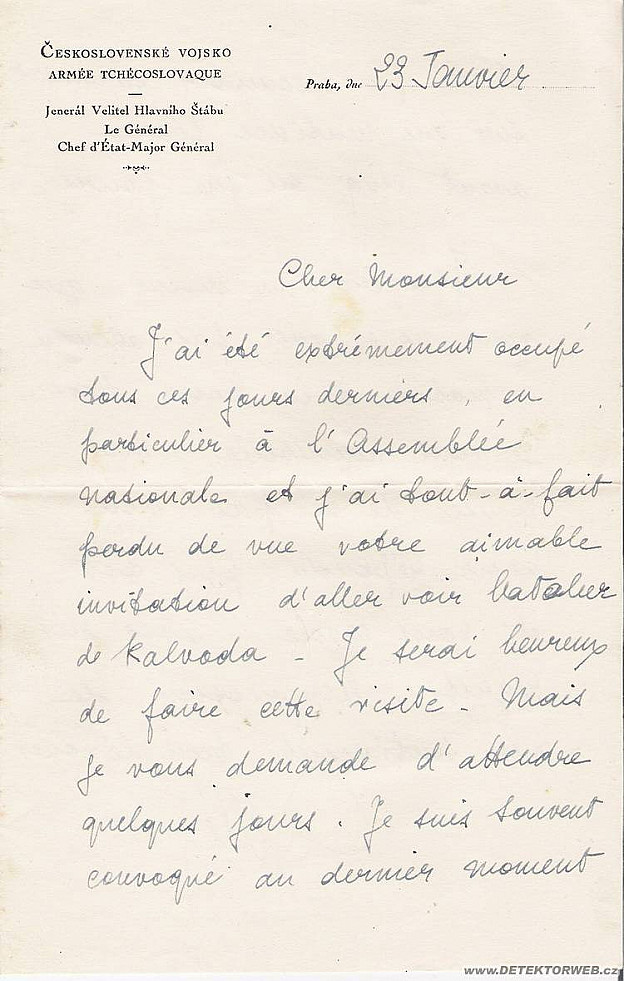 ČESKOSLOVENSKÉ VOJSKO
ARMÉE TCHÉCOSLOVAQUE
Jenerál Velitel Hlavního Štábu
Le Général
Chef d'État-Major Général
Praha, dne 23 Janvier
Cher Monsieur
J'ai été extrémement occupé
tous ces jours derniers, en
particulier à l'Assemblée
nationale et j'ai tout-à-fait
perdu de vue votre aimable
invitation d'aller voir l'atelier
de Kalvoda - Je serai heureux
de faire cette visite - Mais
je vous demande d'attendre
quelques jours. Je suis souvent
convoqué au dernier moment
www.DETEKTORWEB.cz